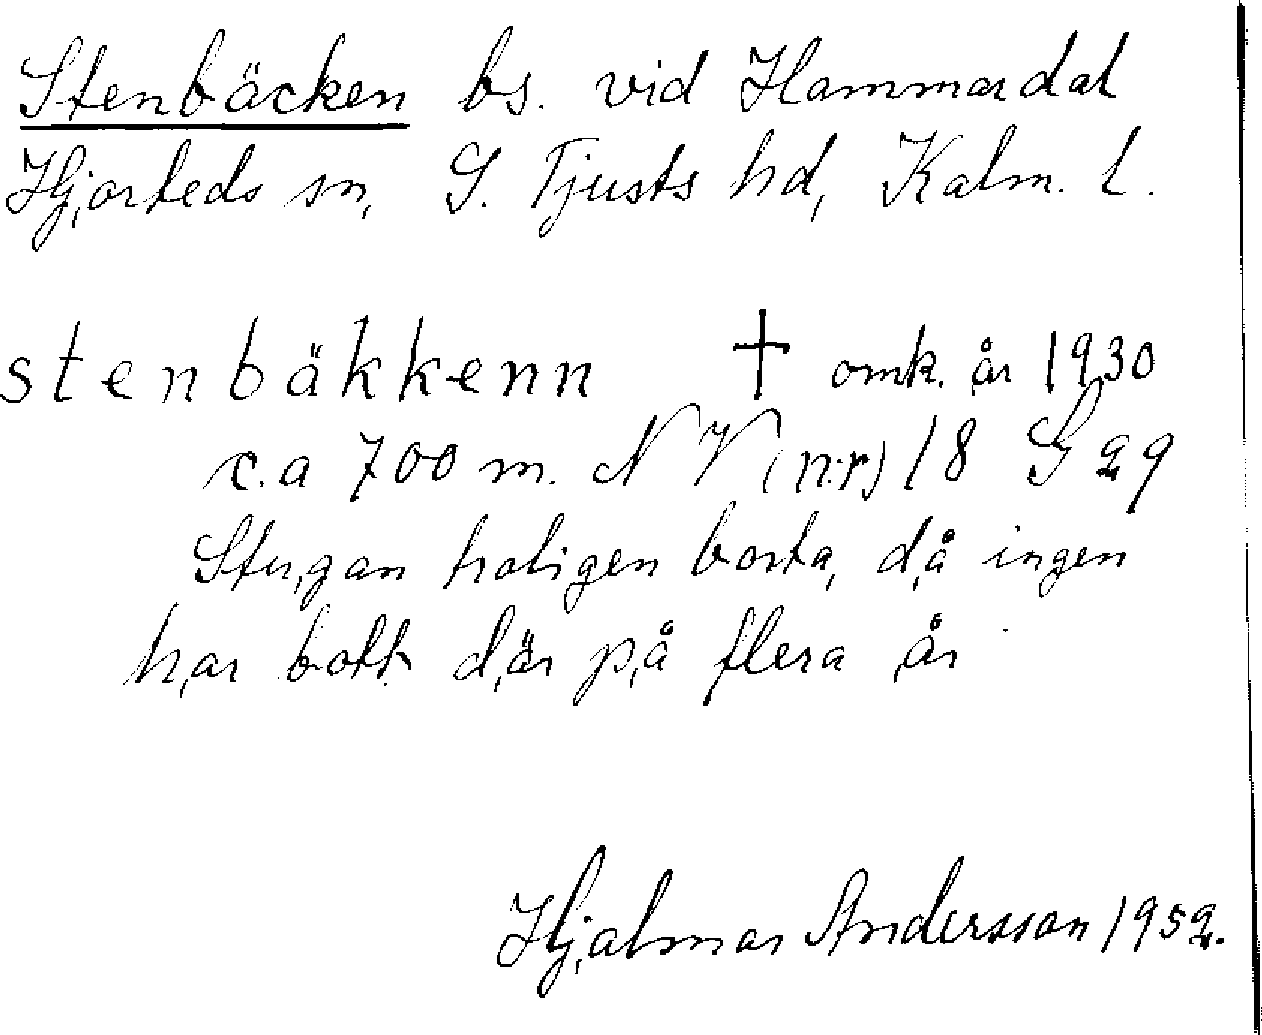 Stenbäcken bs. vid Hammardal
Hjorteds sn, S. Tjusts hd, Kalm. l.
stenbäkkenn † omk. år 1930
c.a 700 m. NV (n:r) 18 G 29
Stugan troligen borta, då ingen
har bott där på flera år
Hjalmar Andersson 1952.